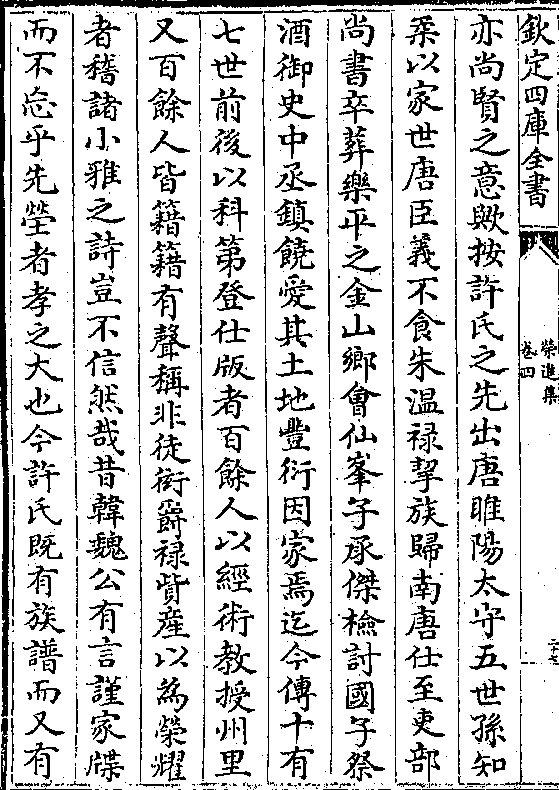 欽定四庫全書
榮進集
卷四
亦尚賢之意歟按許氏之先出唐睢陽太守五世孫知
柔以家世唐臣義不食朱溫禄挈族歸南唐仕至吏部
尚書卒葬樂平之金山鄉會仙峯子承傑檢討國子祭
酒御史中丞鎮饒愛其土地豐衍因家焉迄今傳十有
七世前後以科第登仕版者百餘人以經術教授州里
又百餘人皆籍籍有聲稱非徒衒爵禄貲産以為榮耀
者稽諸小雅之詩豈不信然哉昔韓魏公有言謹家牒
而不忘乎先塋者孝之大也今許氏既有族譜而又有